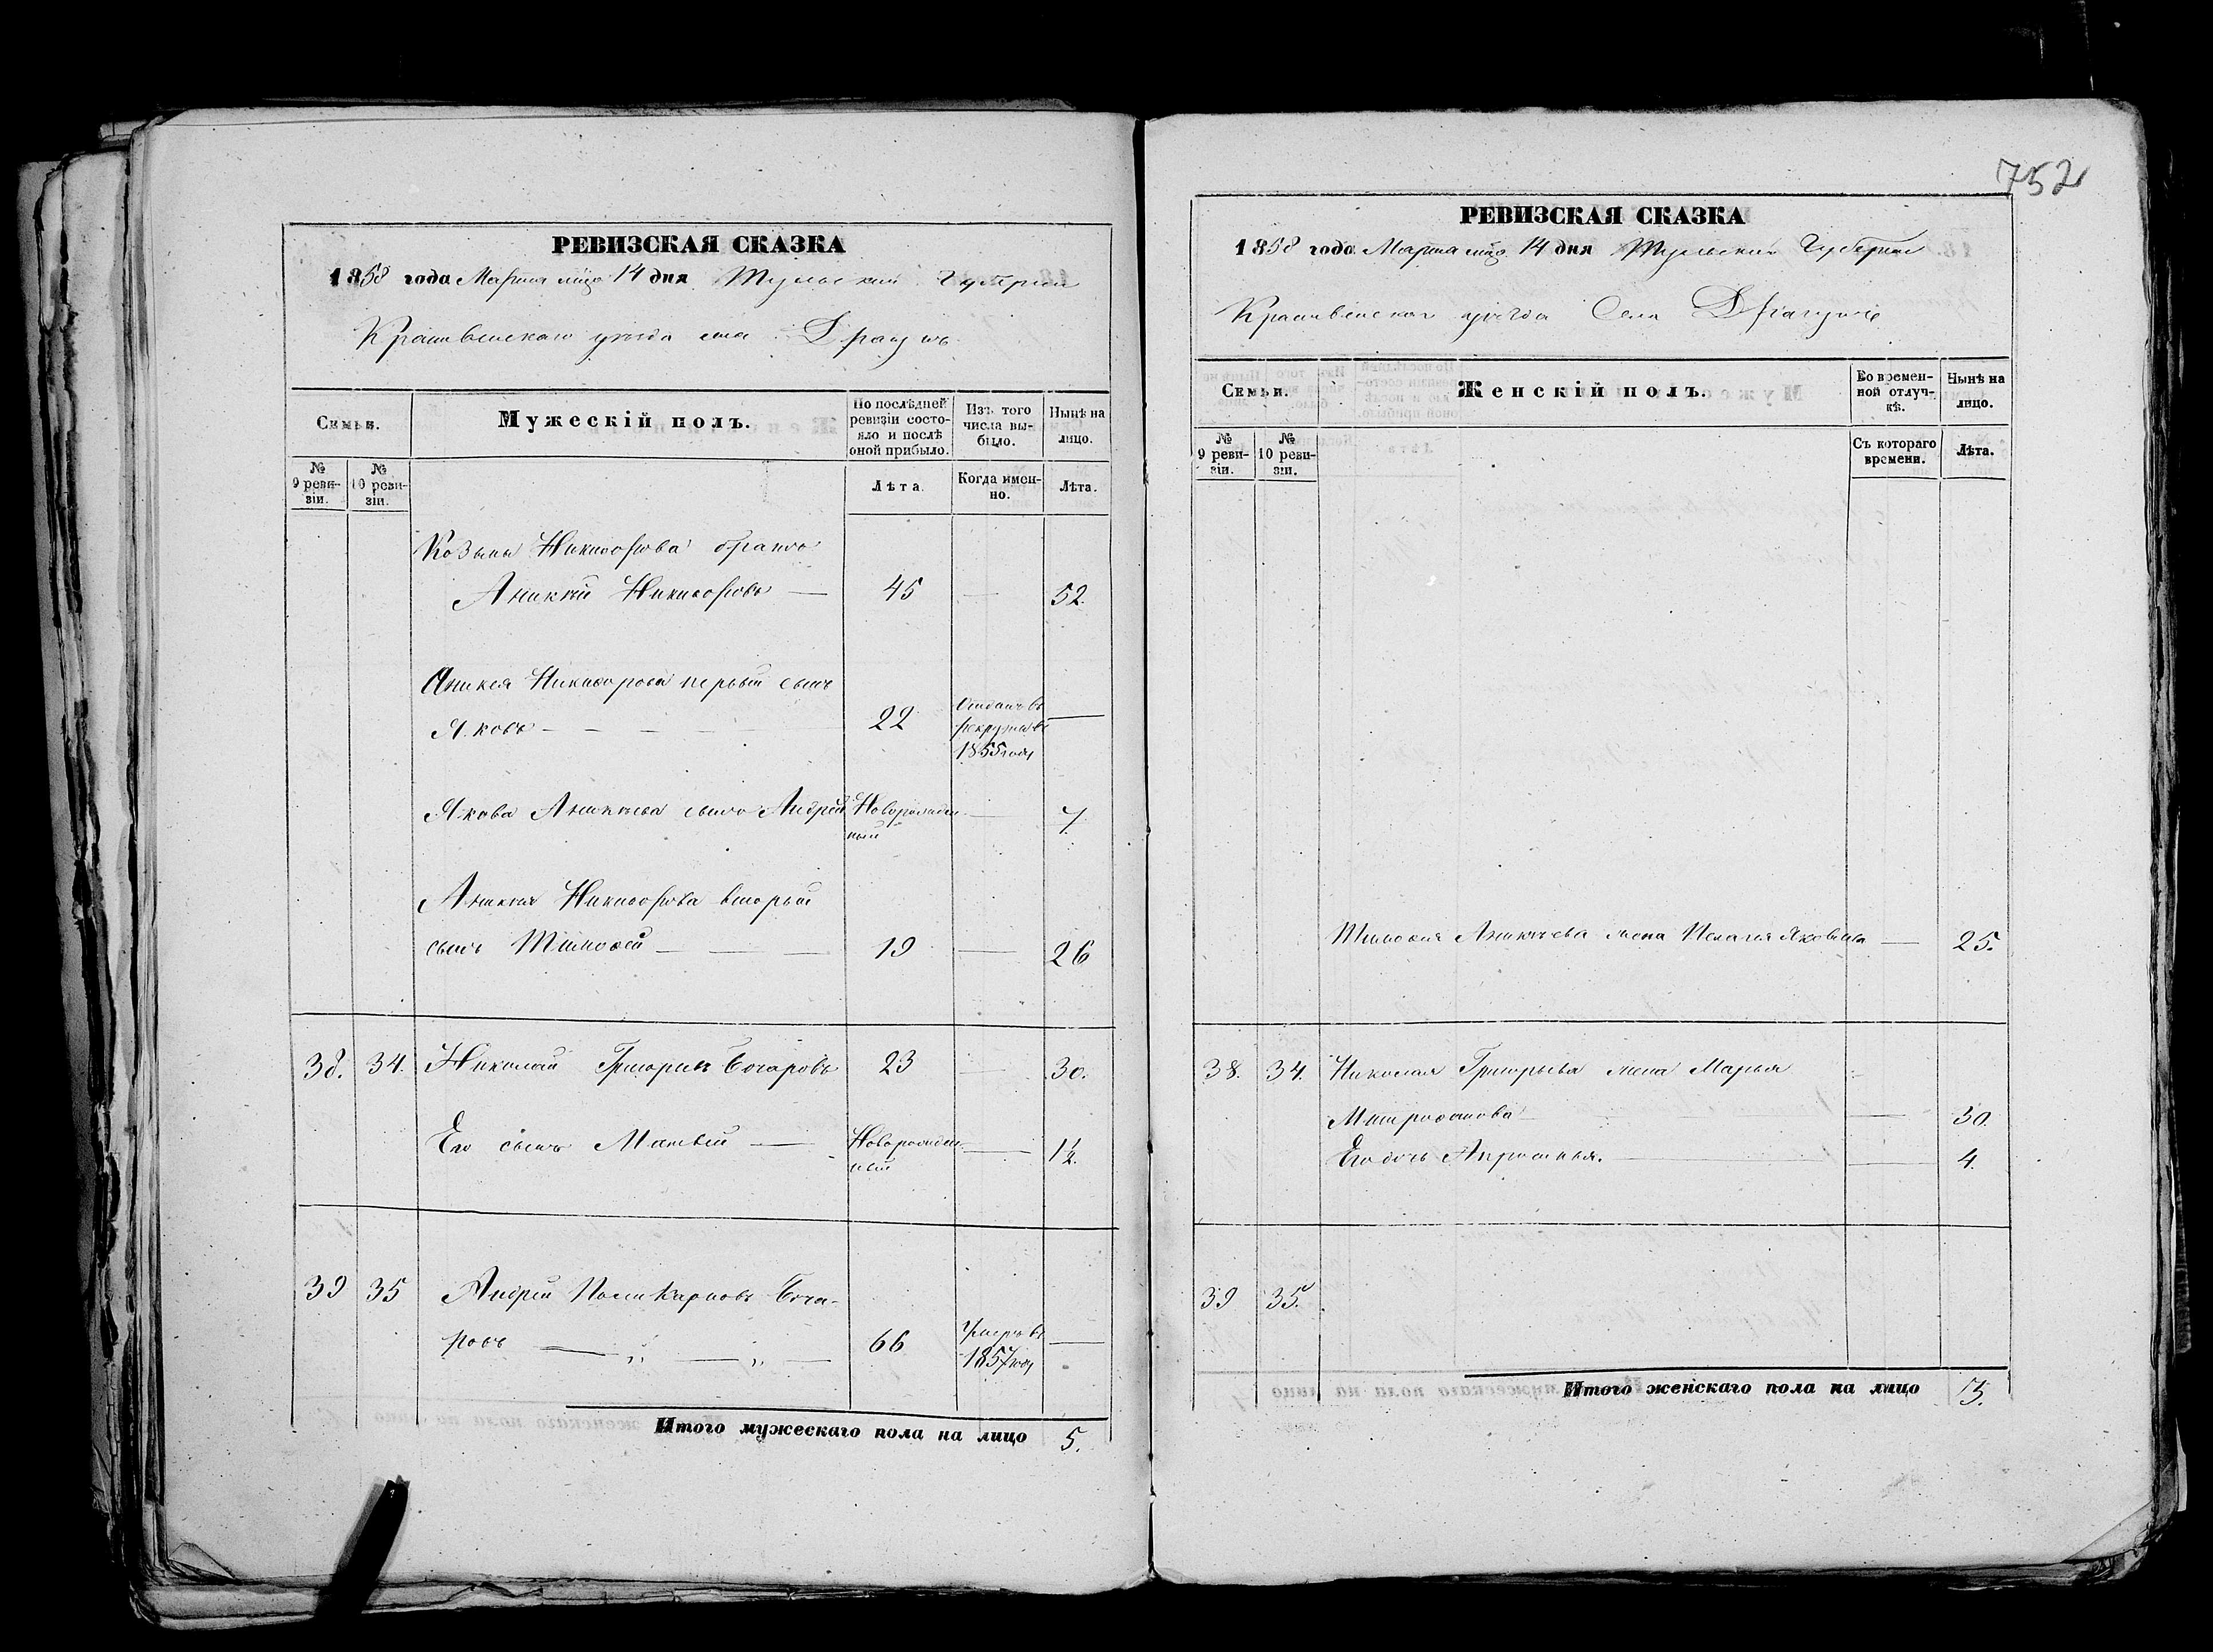 752
РЕВИЗСКАЯ СКАЗКА
1858 года Марта мца 14 дня Тульской Губернии
Крапивенскаго уезда села
Семьи.
Мужескій полъ.
По послѣдней ревизіи состояло и послѣ оной прибыло.
Изъ того числа выбыло.
Нынѣ на лицо.
№ 9 ревизіи.
№ 10 ревизіи.
Лѣта.
Когда именно.
Лѣта.
Козьмы Никифорова братъ
Аникѣй Никифоровъ — 45 — 52.
Аникея Никифорова первый сынъ
Яковъ — — — — 22 Отданъ въ рекруты въ 1855 году —
Якова Аникѣева сынъ Андрей Новорожденный — 7
Аникея Никифорова вторый
сынъ Тимофей — — — 19 — 26
38. 34. Николай Григорьевъ Бочаровъ 23 — 30.
Его сынъ Матвей — Новорожденный — 1½.
39 35 Андрей Поликарповъ Боча-
ровъ — „ — „ — 66 Умеръ въ 1857 году —
Итого мужескаго пола на лицо 5.
РЕВИЗСКАЯ СКАЗКА
1858 года Марта мца 14 дня Тульской Губернии
Крапивенскаго уезда Села
Семьи.
Женскій полъ.
Во временной отлучкѣ.
Нынѣ на лицо.
№ 9 ревизіи.
№ 10 ревизіи.
Съ котораго времени.
Лѣта.
Тимофея Аникѣева жена Пелагея Яковлева — 25.
38. 34. Николая Григорьева жена Марья
Митрофанова — — 30.
Его дочь Апросинья. — — 4.
39 35.
Итого женскаго пола на лицо 3.